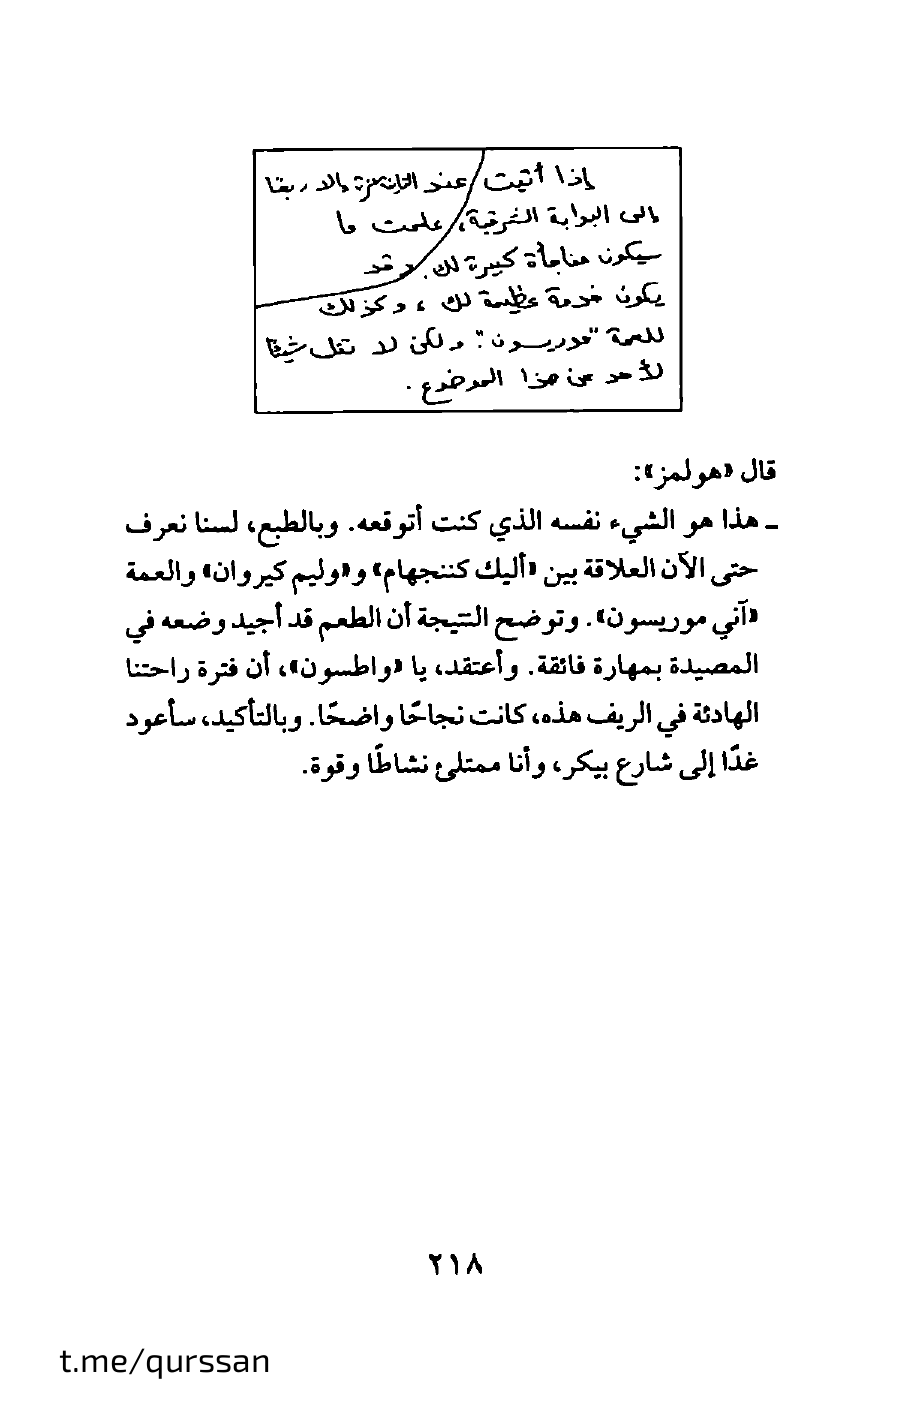 إذا أتيت عند الثانية عشرة إلا ربعًا
إلى البوابة الشرقية، علمت ما
سيكون مفاجأة كبيرة لك. وقد
يكون خدمة عظيمة لك ، وكذلك
للعمة "موريسون". ولكن لا تقل شيئًا
لأحد عن هذا الموضوع .
قال «هولمز»:
ـ هذا هو الشيء نفسه الذي كنت أتوقعه. وبالطبع، لسنا نعرف
حتى الآن العلاقة بين «أليك كننجهام» و«وليم كيروان» والعمة
«آني موريسون». وتوضح النتيجة أن الطعم قد أجيد وضعه في
المصيدة بمهارة فائقة. وأعتقد، يا «واطسون»، أن فترة راحتنا
الهادئة في الريف هذه، كانت نجاحًا واضحًا. وبالتأكيد، سأعود
غدًا إلى شارع بيكر، وأنا ممتلئ نشاطًا وقوة.
٢١٨
t.me/qurssan